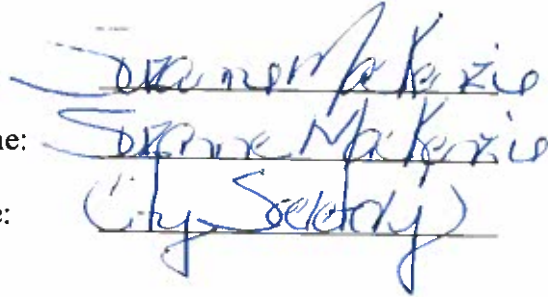 Suzanne MacKenzie
ne: Suzanne MacKenzie
e: City Secretary